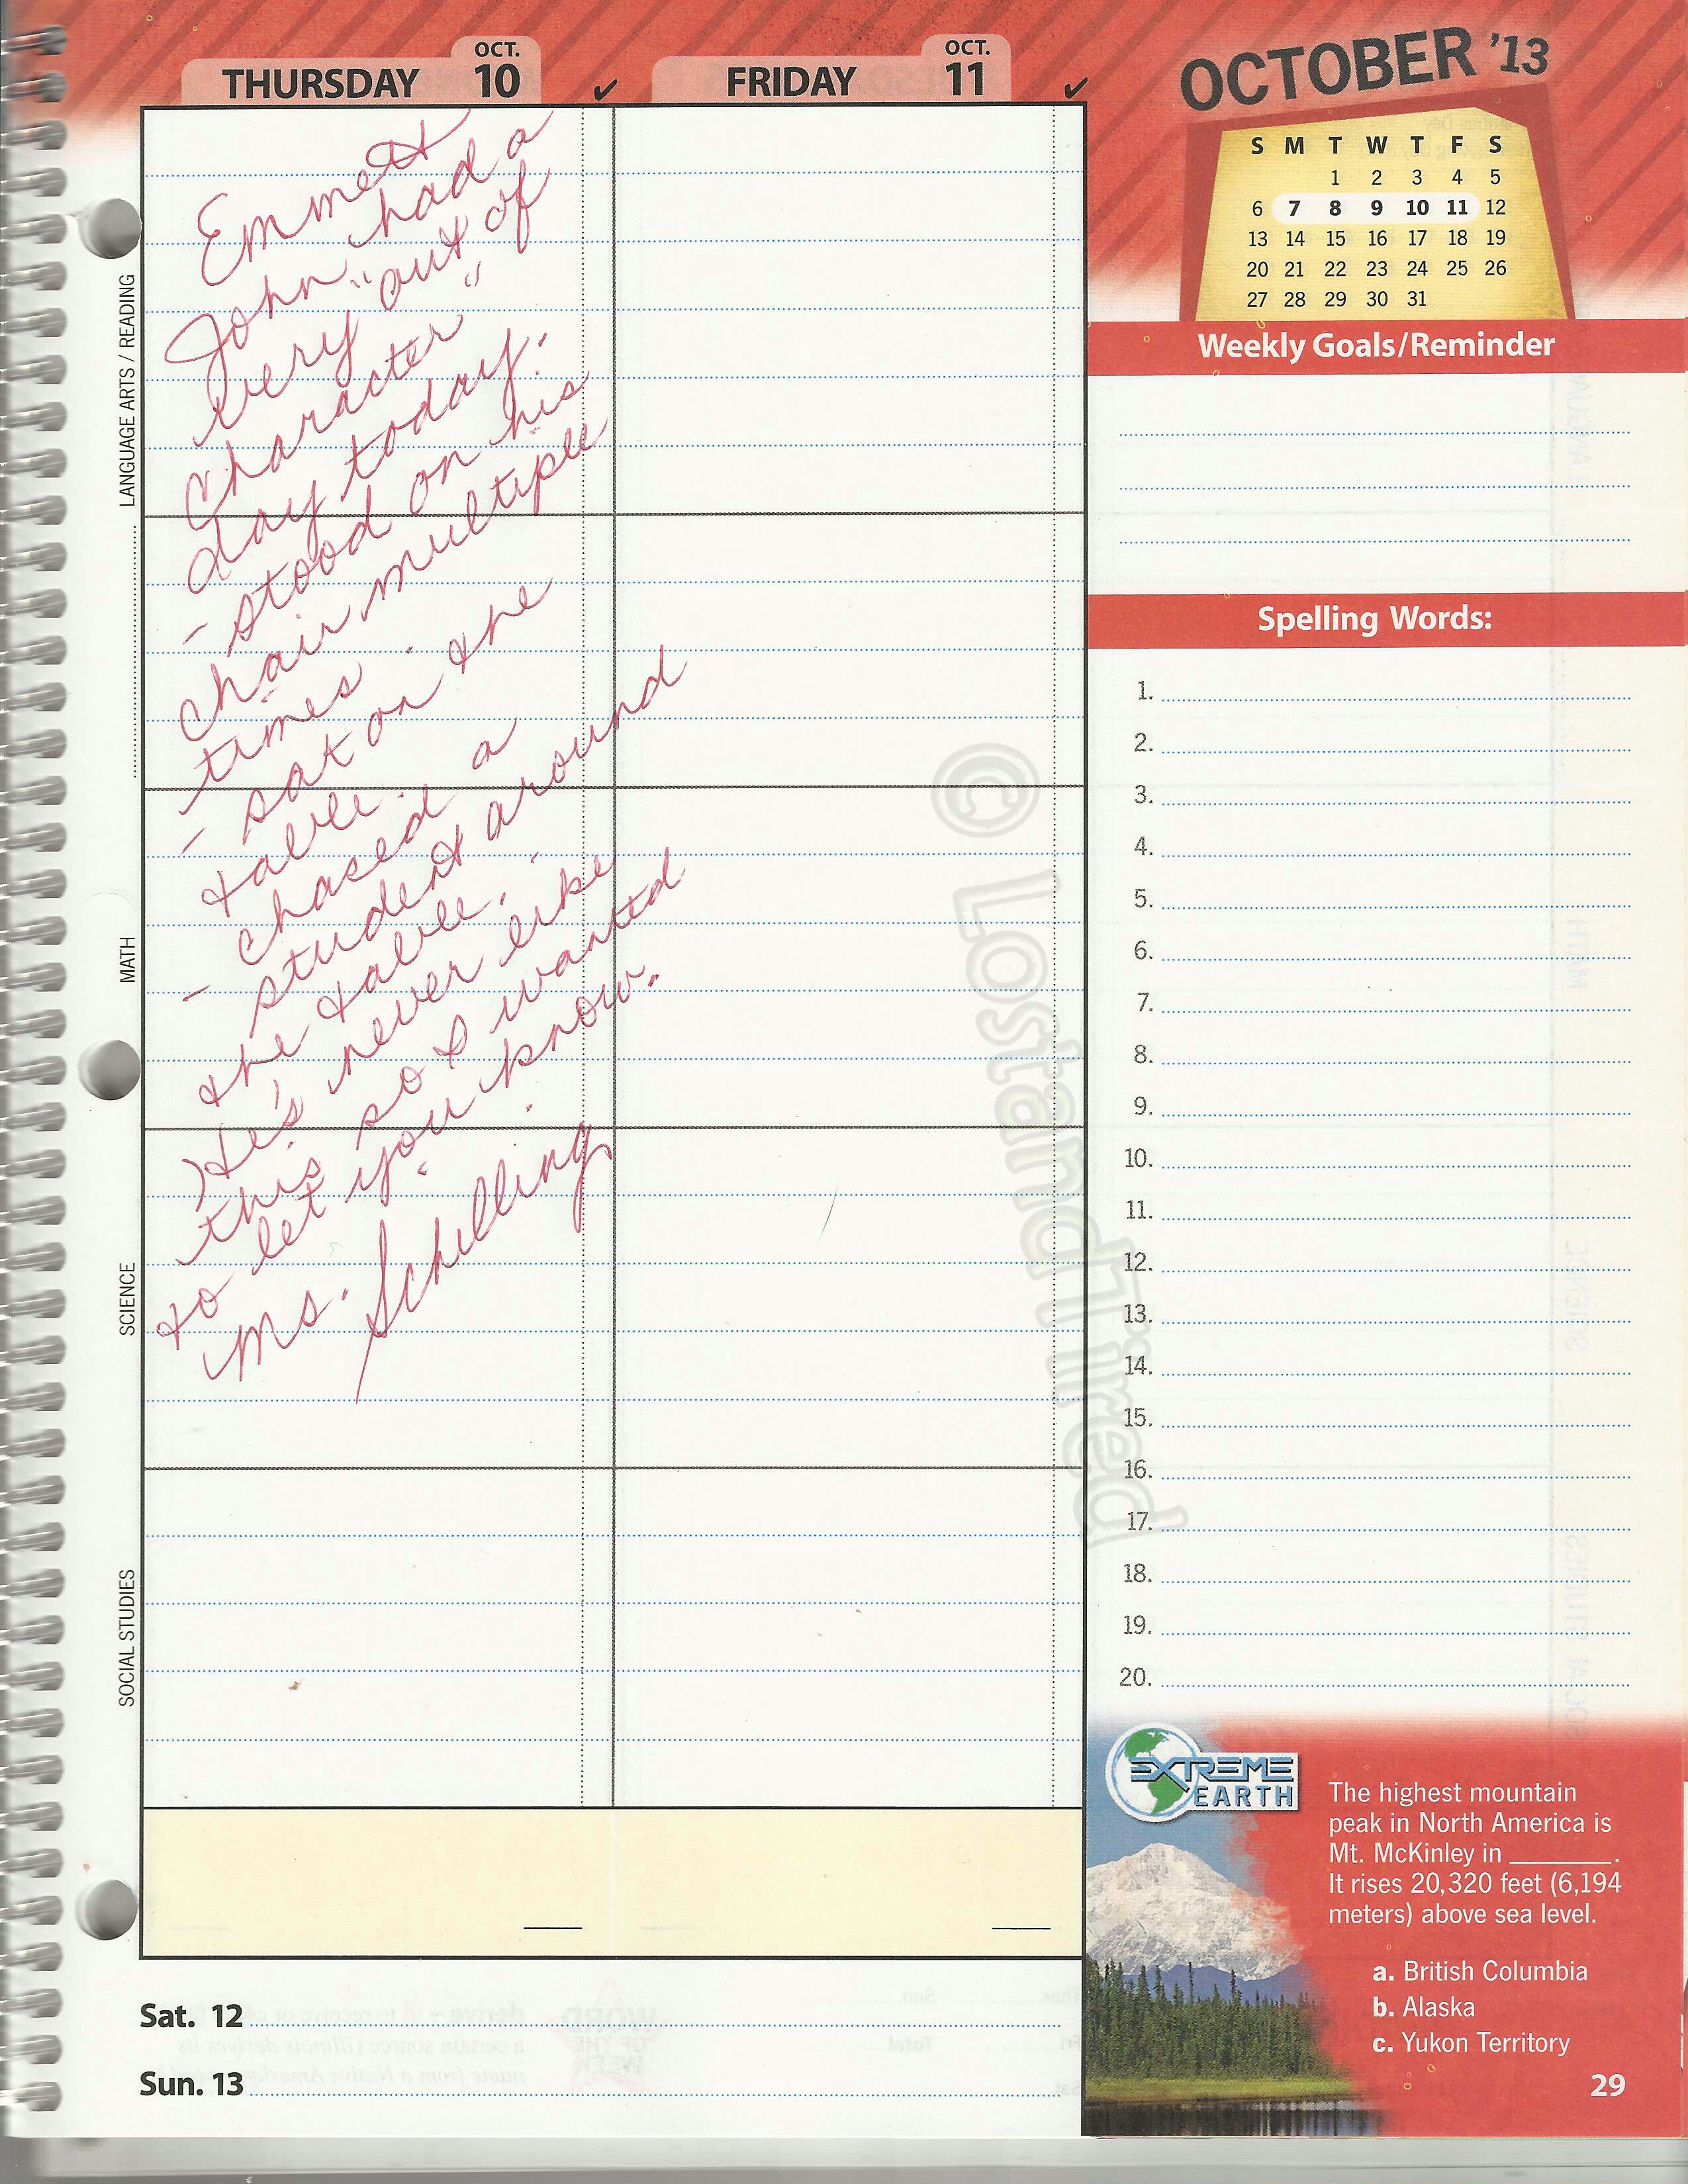 THURSDAY
OCT.
10
✓
FRIDAY
OCT.
11
✓
OCTOBER '13
S M T W T F S
1 2 3 4 5
6 7 8 9 10 11 12
13 14 15 16 17 18 19
20 21 22 23 24 25 26
27 28 29 30 31
LANGUAGE ARTS / READING
MATH
SCIENCE
SOCIAL STUDIES
Emmett
John had a
very "out of
character"
day today.
- stood on his
chair multiple
times.
- sat on the
table.
- chased a
student around
the table.
He's never like
this so I wanted
to let you know.
Ms. Schilling
Weekly Goals/Reminder
Spelling Words:
1.
2.
3.
4.
5.
6.
7.
8.
9.
10.
11.
12.
13.
14.
15.
16.
17.
18.
19.
20.
© LostandTired
EXTREME
EARTH
The highest mountain
peak in North America is
Mt. McKinley in ________.
It rises 20,320 feet (6,194
meters) above sea level.
a. British Columbia
b. Alaska
c. Yukon Territory
29
Sat. 12
Sun. 13